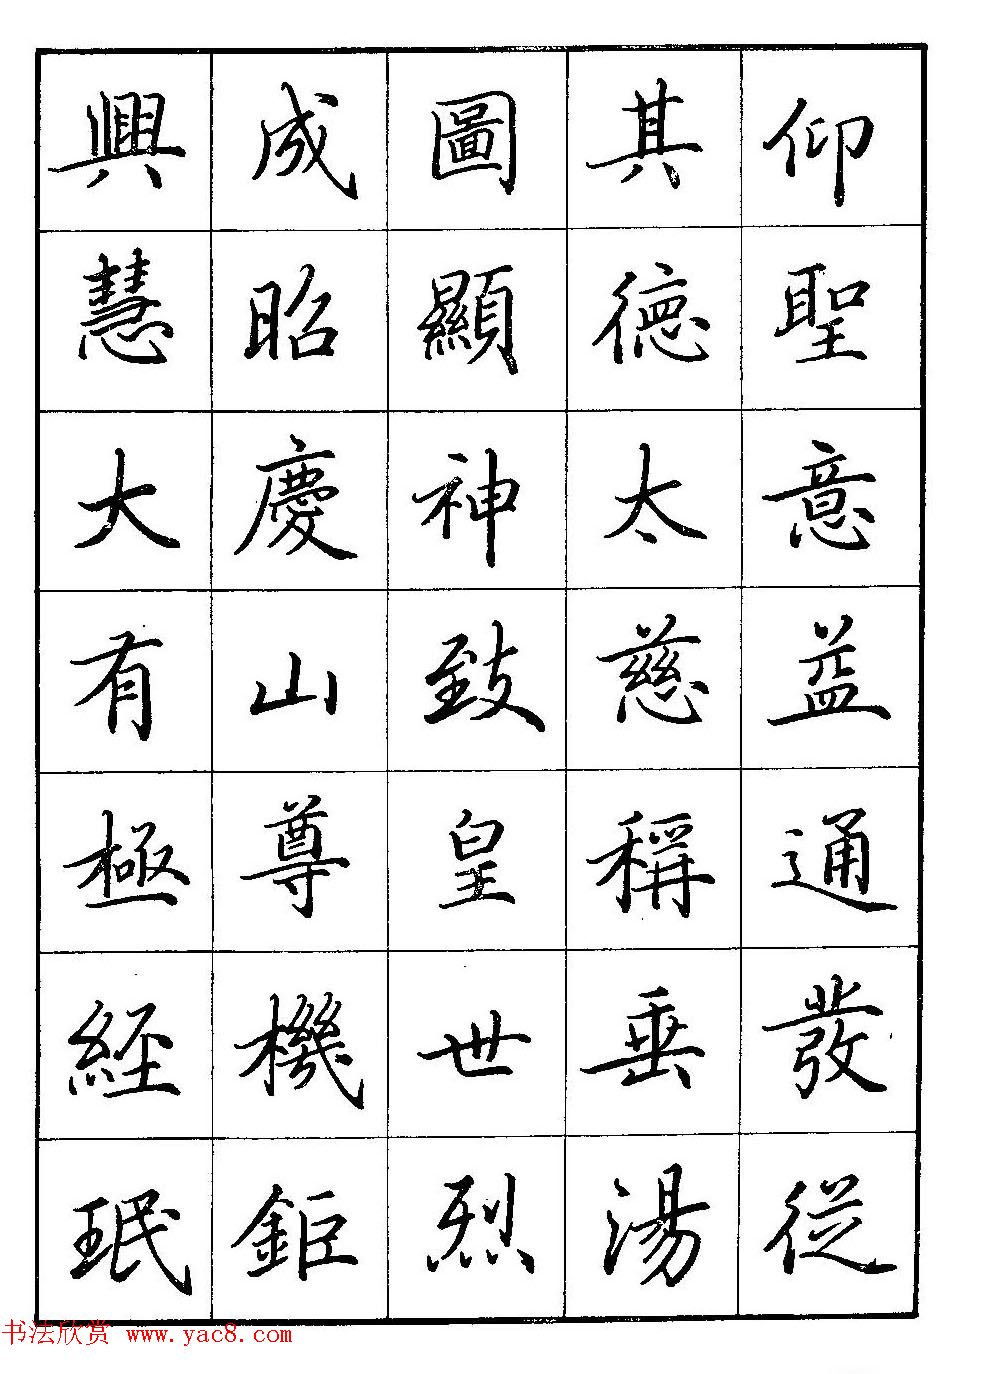 仰聖意益通發從
其德太慈稱垂湯
圖顯神致皇世烈
成昭慶山尊機鉅
興慧大有極經珉
书法欣赏 www.yac8.com